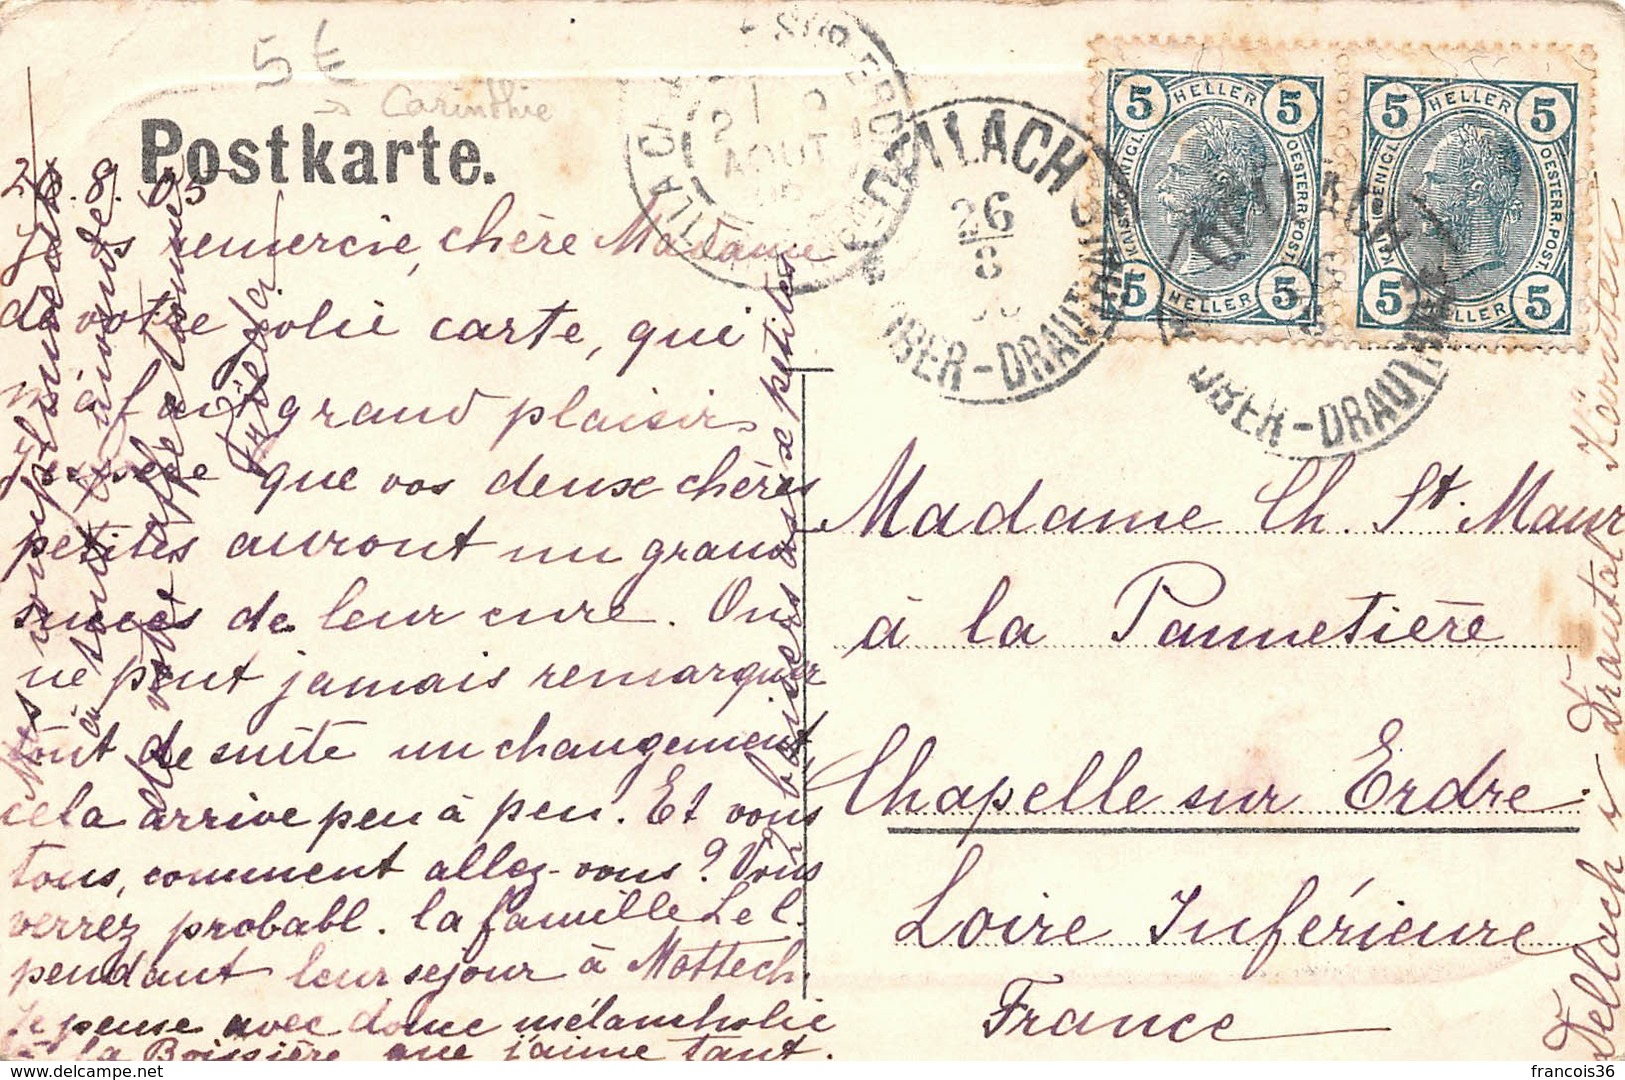 5 €
→ Carinthie
Postkarte.
8. 05
Je vous remercie, chère Madame
de votre jolie carte, qui
m'a fait grand plaisir.
J'espère que vos deux chères
petites auront un grand
succès de leur cure. On
ne peut jamais remarquer
tout de suite un changement
cela arrive peu à peu. Et vous
tous, comment allez-vous? Vous
verrez probabl. la famille Le L.
pendant leur sejour à Mottech.
Je pense avec douce mélancholie
à la Boissière que j'aime tant.
baisers aux petites
DELLACH
26
8
OBER-DRAUTHAL
AOUT
5 HELLER 5
KAISERL. KOENIGL. OESTERR. POST.
5 HELLER 5
5 HELLER 5
KAISERL. KOENIGL. OESTERR. POST.
5 HELLER 5
OBER-DRAUTHAL
Madame Ch. St. Maur
à la Pannetière
Chapelle sur Erdre
Loire Inférieure
France
Dellach Drautal Kärnten
https://www.delcampe.net
francois36